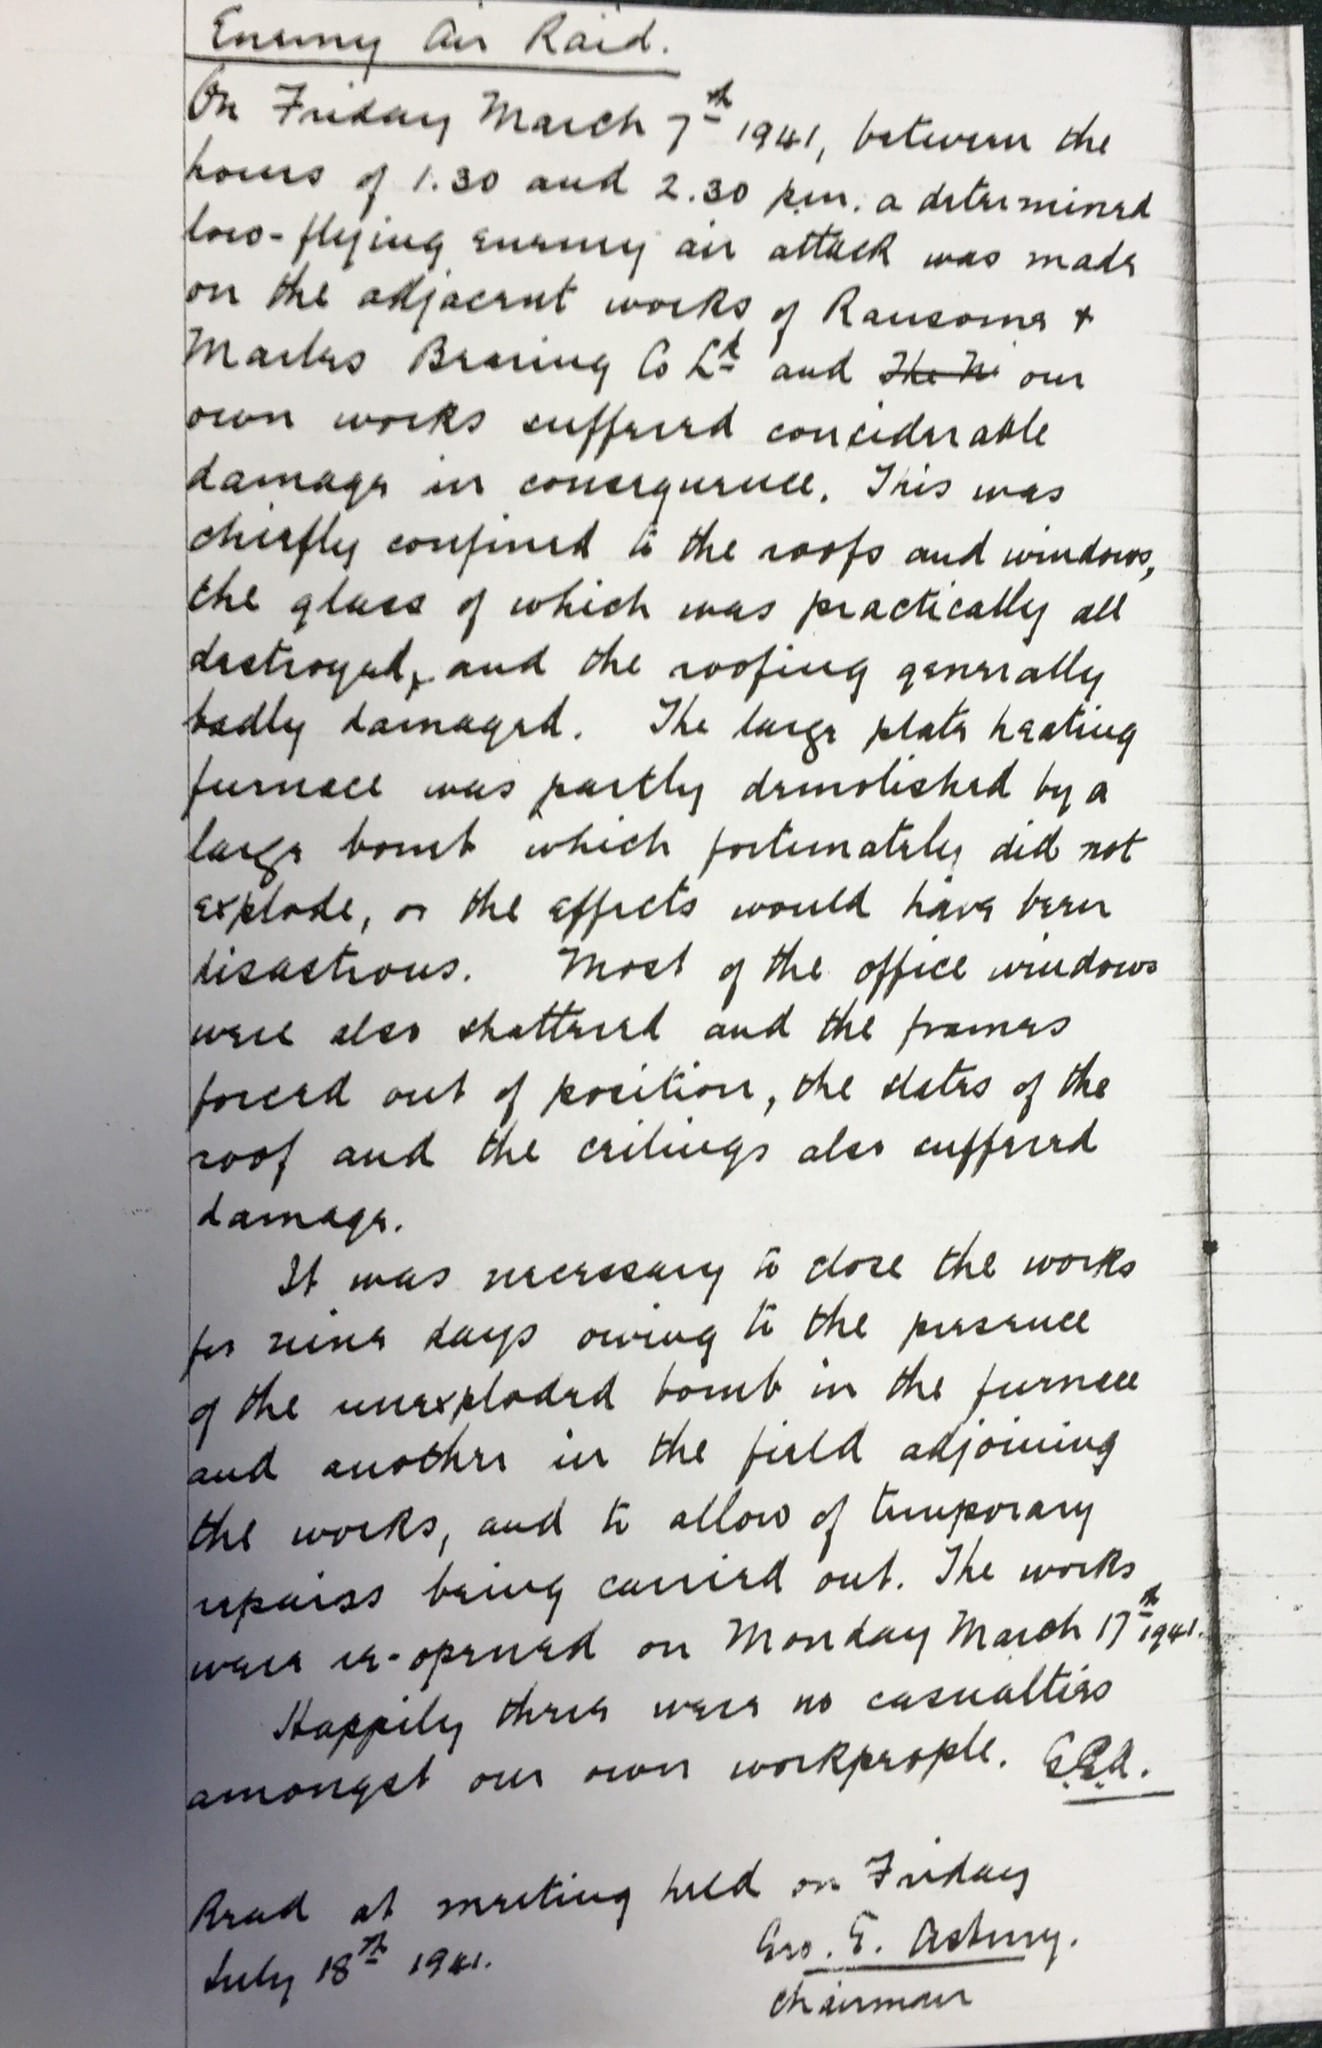 Enemy Air Raid.
On Friday March 7th 1941, between the
hours of 1.30 and 2.30 p.m. a determined
low-flying enemy air attack was made
on the adjacent works of Ransome +
Marles Bearing Co Ld and The N our
own works suffered considerable
damage in consequence. This was
chiefly confined to the roofs and windows,
the glass of which was practically all
destroyed, and the roofing generally
badly damaged. The large plate heating
furnace was partly demolished by a
large bomb which fortunately did not
explode, or the effects would have been
disastrous. Most of the office windows
were also shattered and the frames
forced out of position, the slates of the
roof and the ceilings also suffered
damage.
It was necessary to close the works
for nine days owing to the presence
of the unexploded bomb in the furnace
and another in the field adjoining
the works, and to allow of temporary
repairs being carried out. The works
were re-opened on Monday March 17th 1941.
Happily there were no casualties
amongst our own workpeople. G.E.A.
Read at meeting held on Friday
July 18th 1941.
Geo. E. Asbury.
Chairman